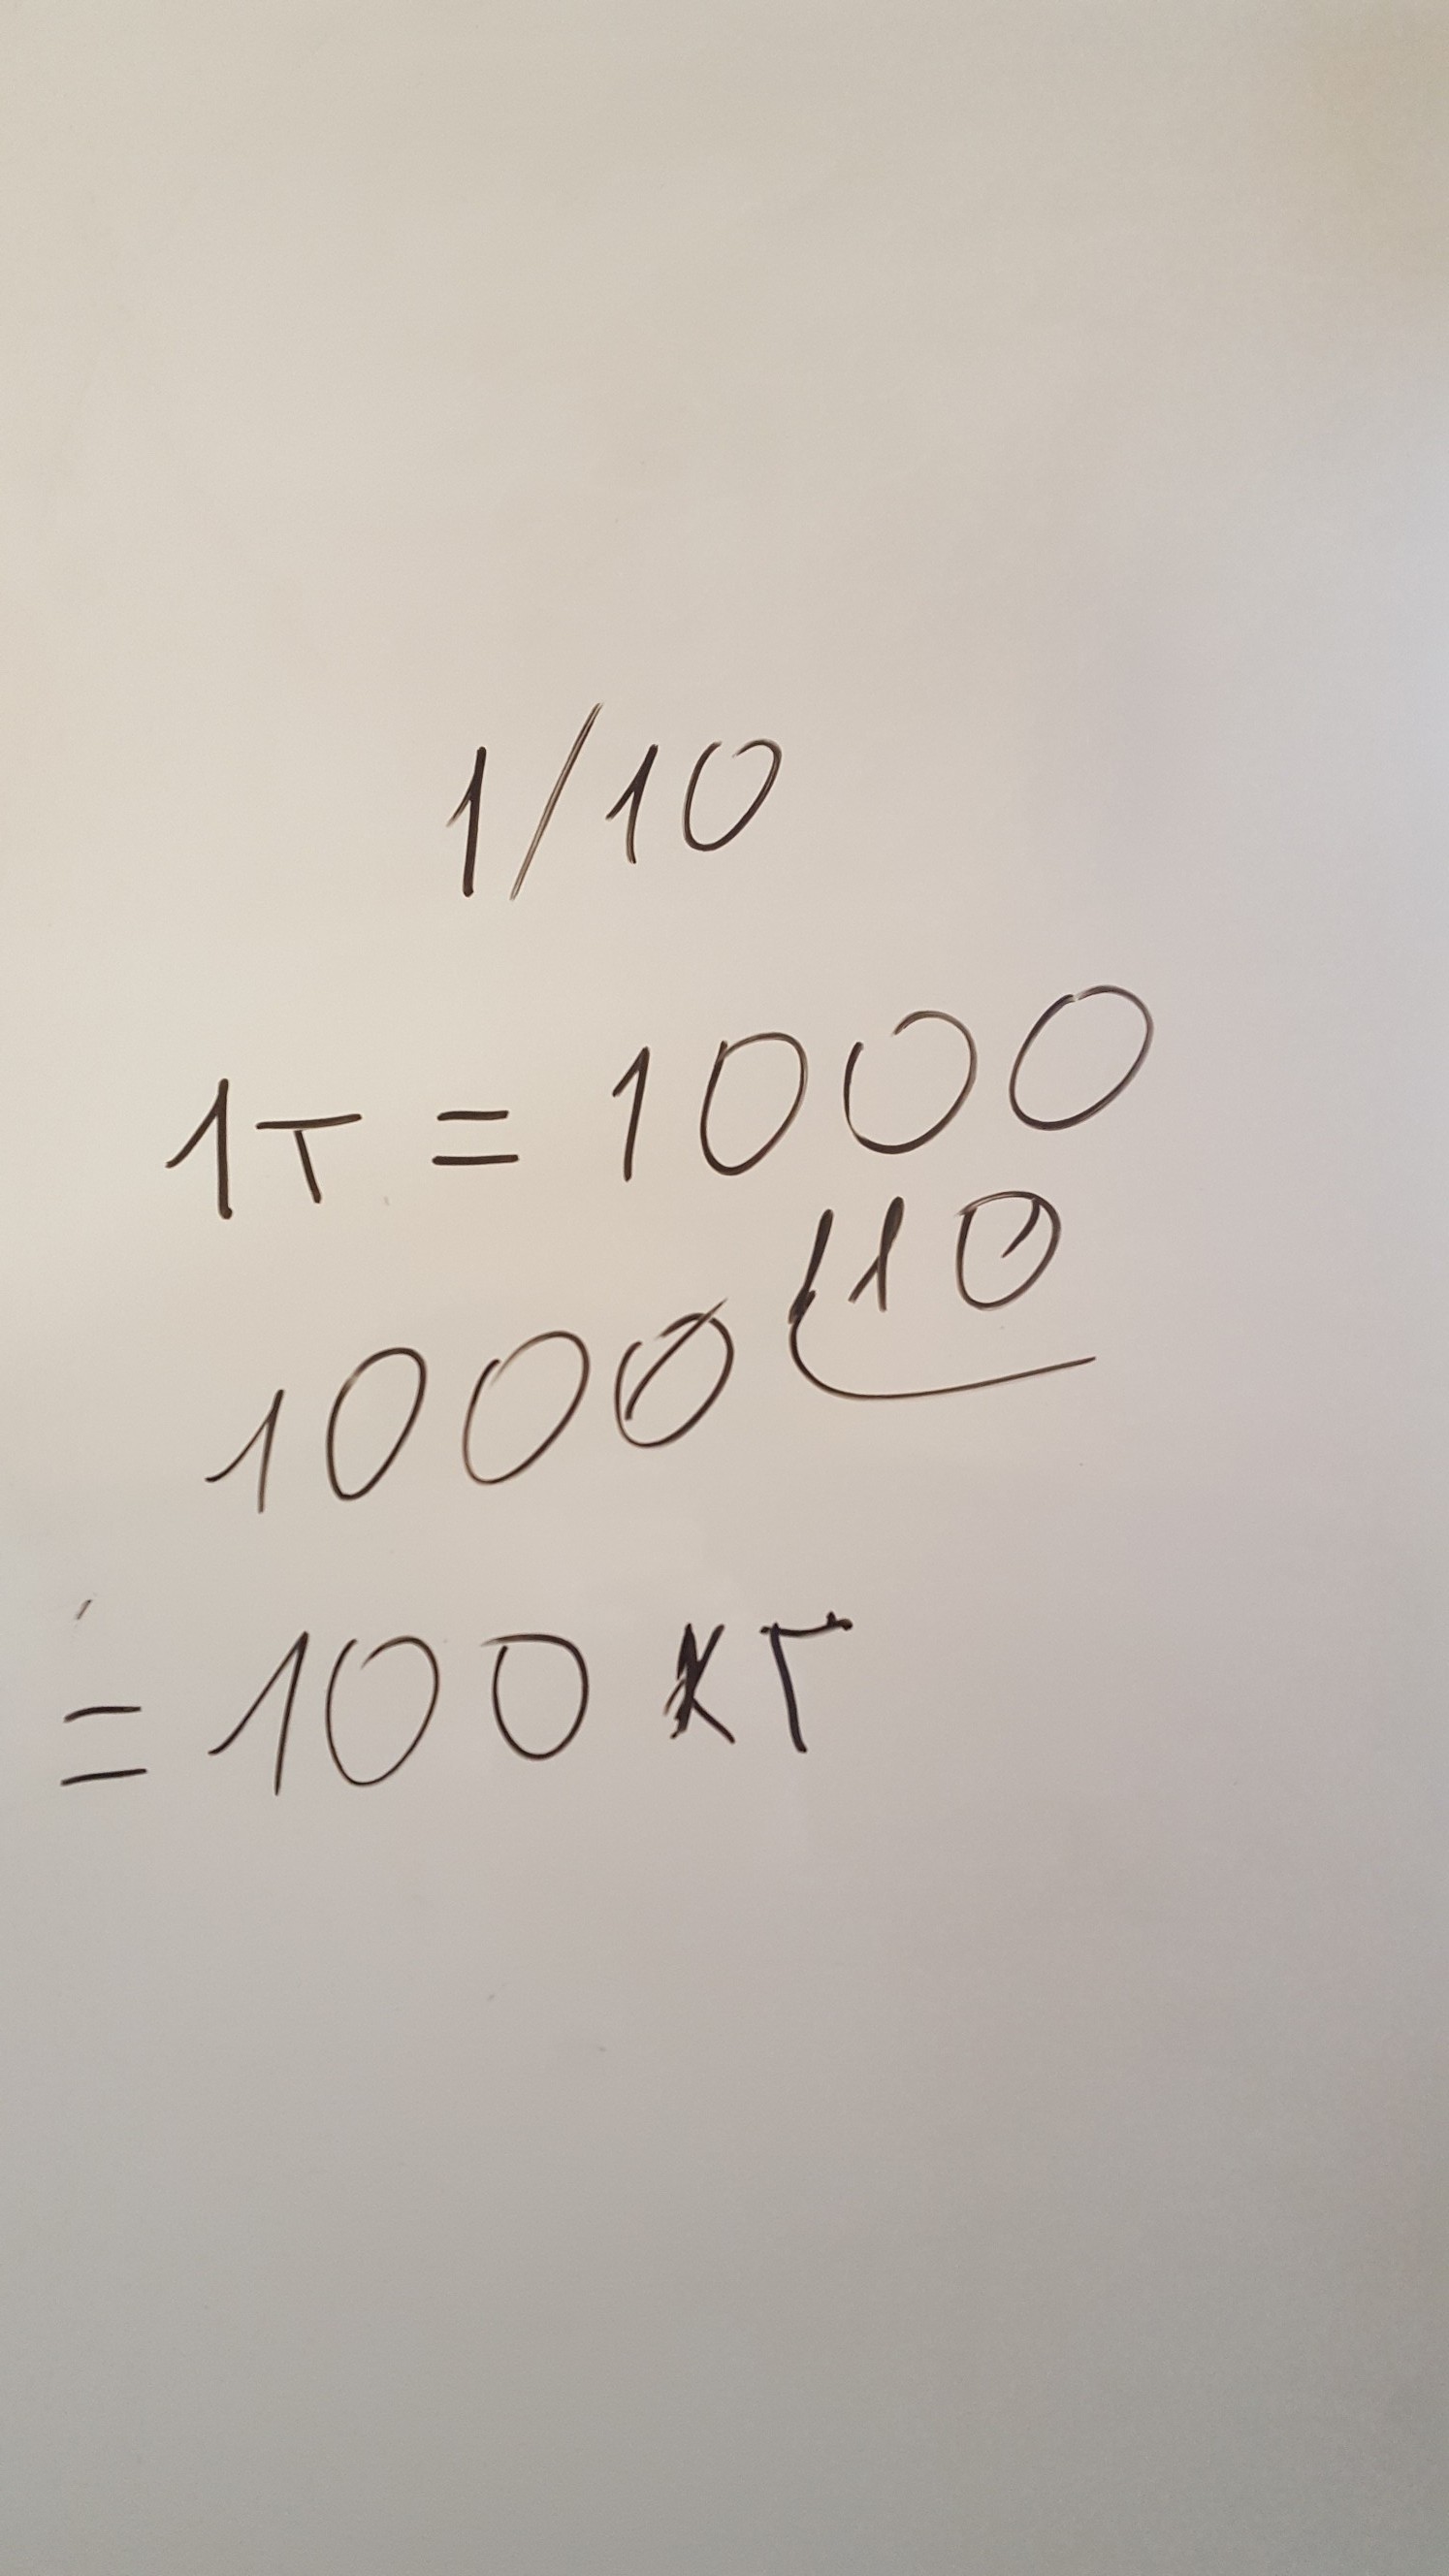 1/10
1т = 1000
1000 10
= 100 кг